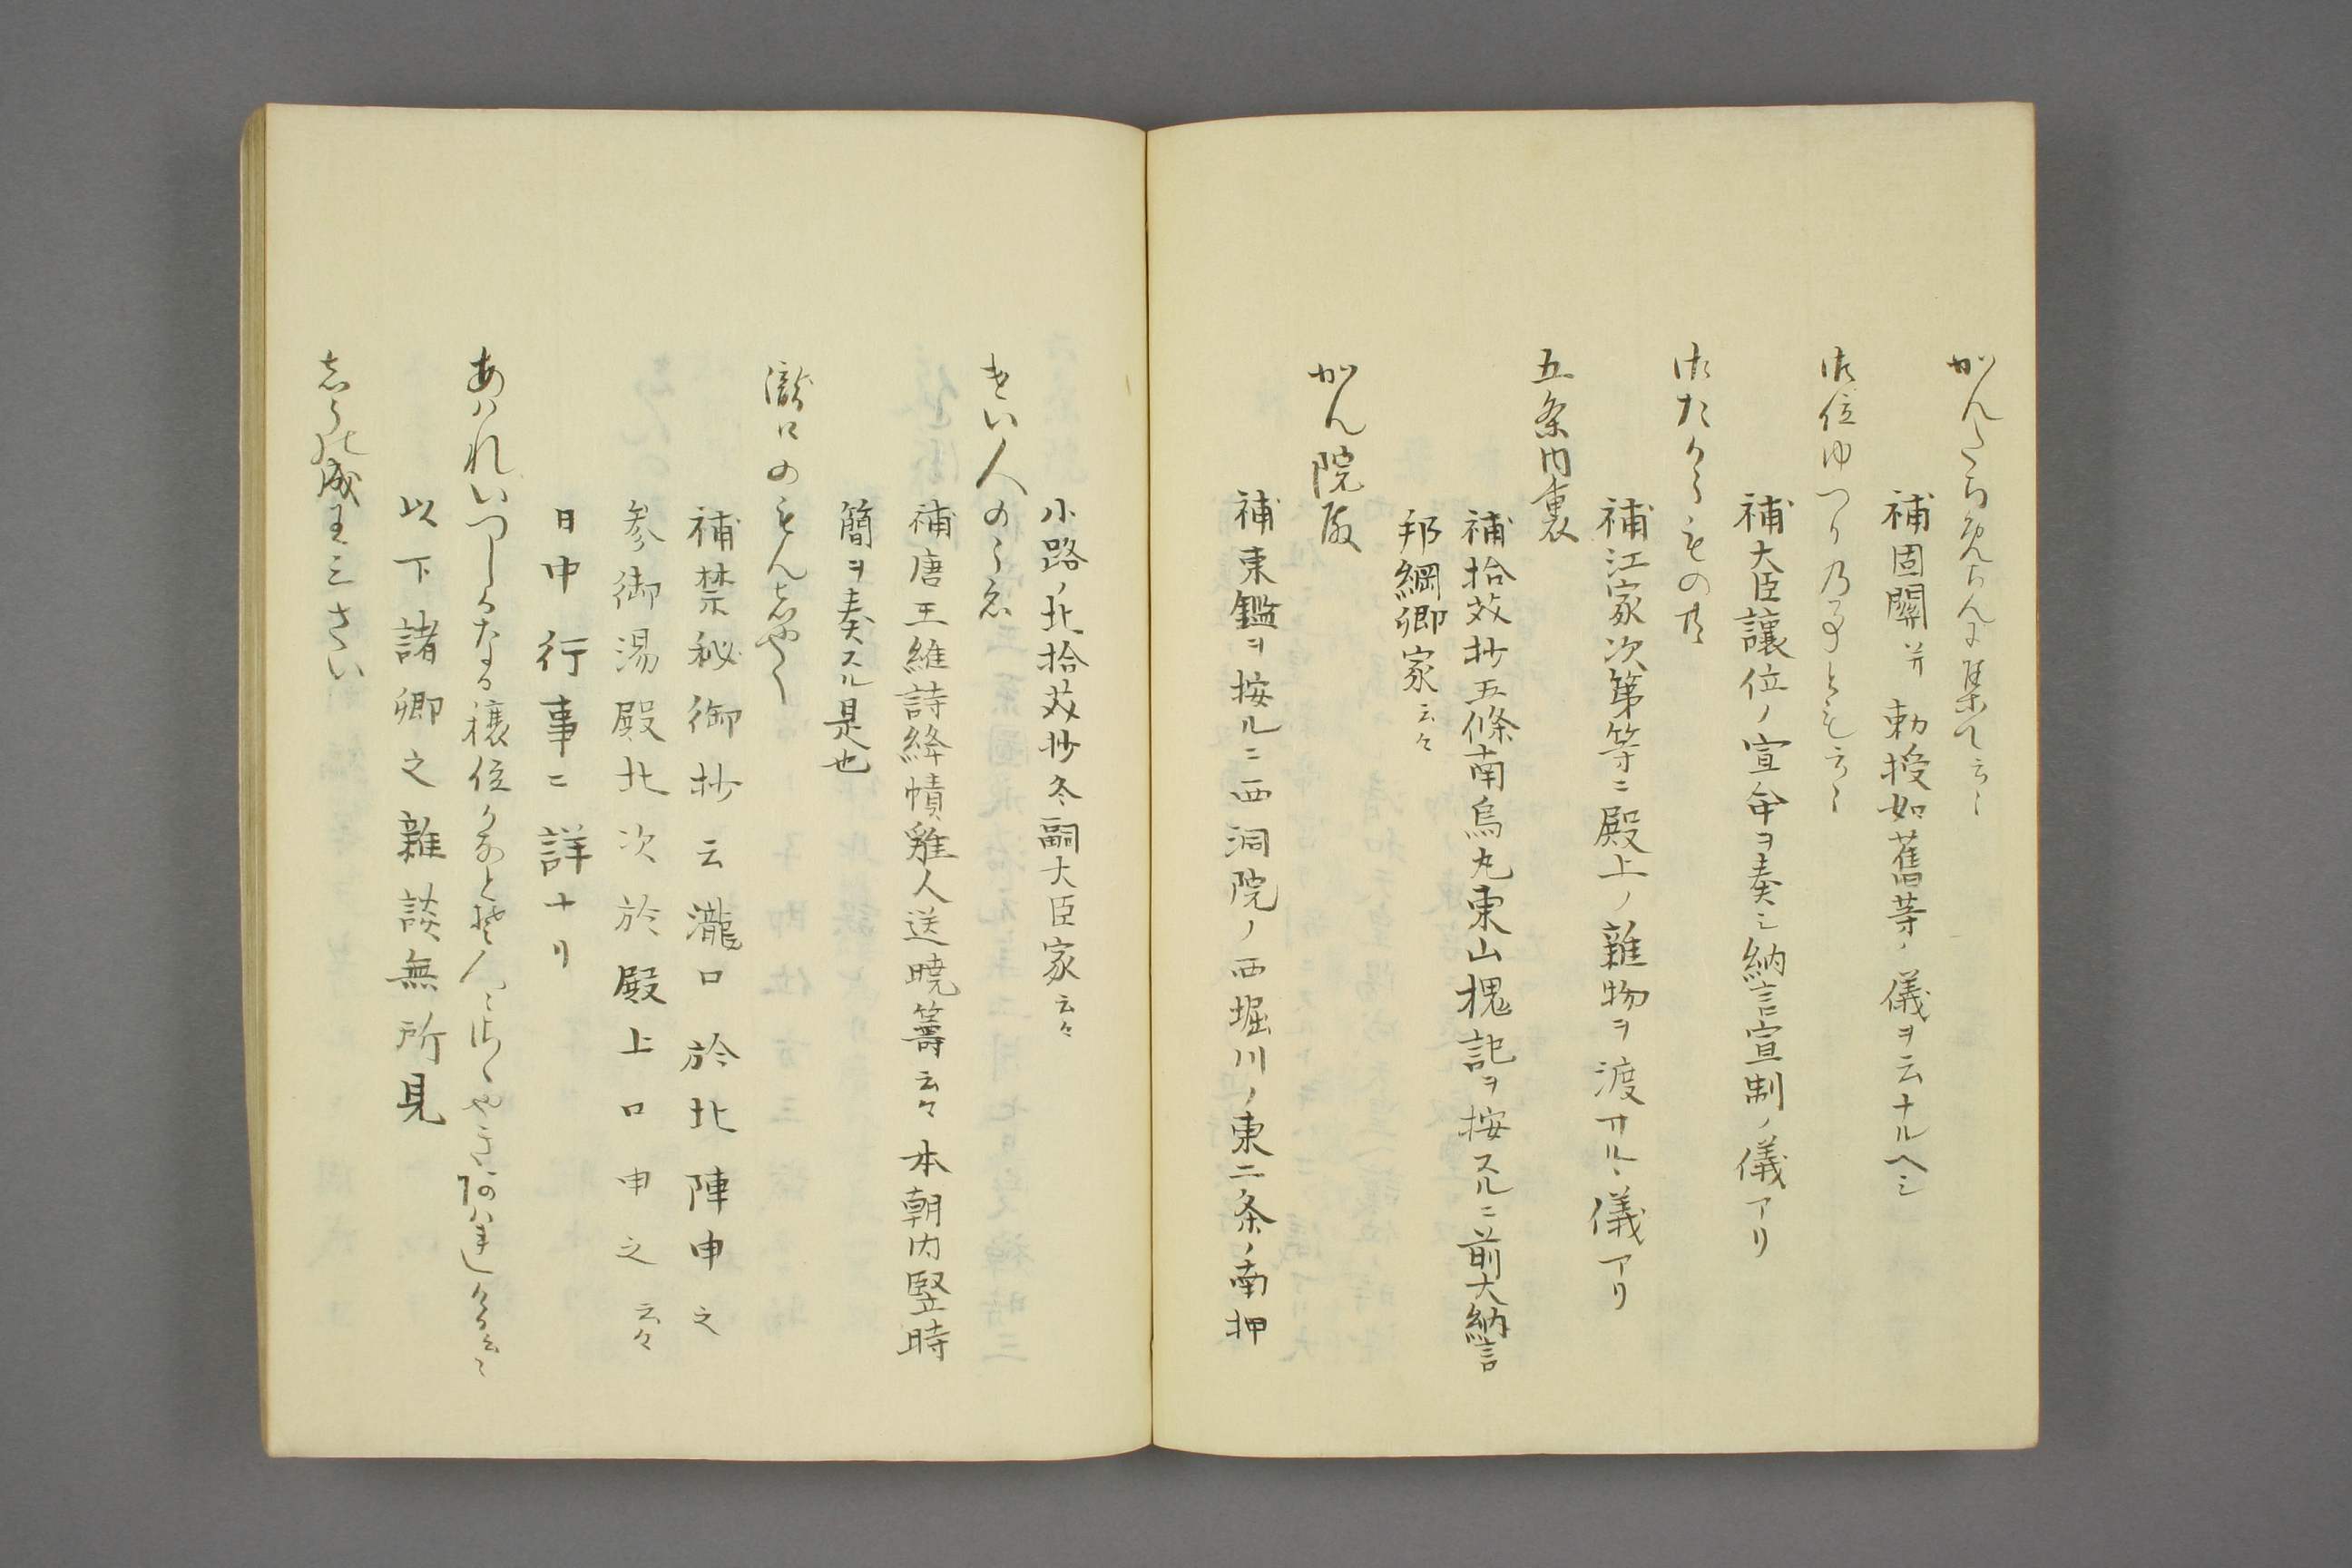 かんたちめちんに集て云々
補固關并勅授如舊等ノ儀ヲ云ナルヘシ
御位ゆつりの事とも云々
補大臣讓位ノ宣命ヲ奏シ納言宣制ノ儀アリ
御たからもの共
補江家次第等ニ殿上ノ雜物ヲ渡サルヽ儀アリ
五条内裏
補拾芥抄五條南烏丸東山槐記ヲ按スルニ前大納言
邦綱卿家云々
かん院殿
補東鑑ヲ按ルニ西洞院ノ西堀川ノ東二条ノ南押
小路ノ北拾芥抄冬嗣大臣家云々
けい人のこゑ
補唐王維詩絳幘雞人送曉籌云々本朝内豎時
簡ヲ奏スル是也
瀧口のもんしやく
補禁秘御抄云瀧口於北陣申之
参御湯殿北次於殿上口申之云々
日中行事ニ詳ナリ
あはれいつしかなる穣位かなと人々さゝやきあはれしける云々
以下諸卿之雜談無所見
しうの成王三さい